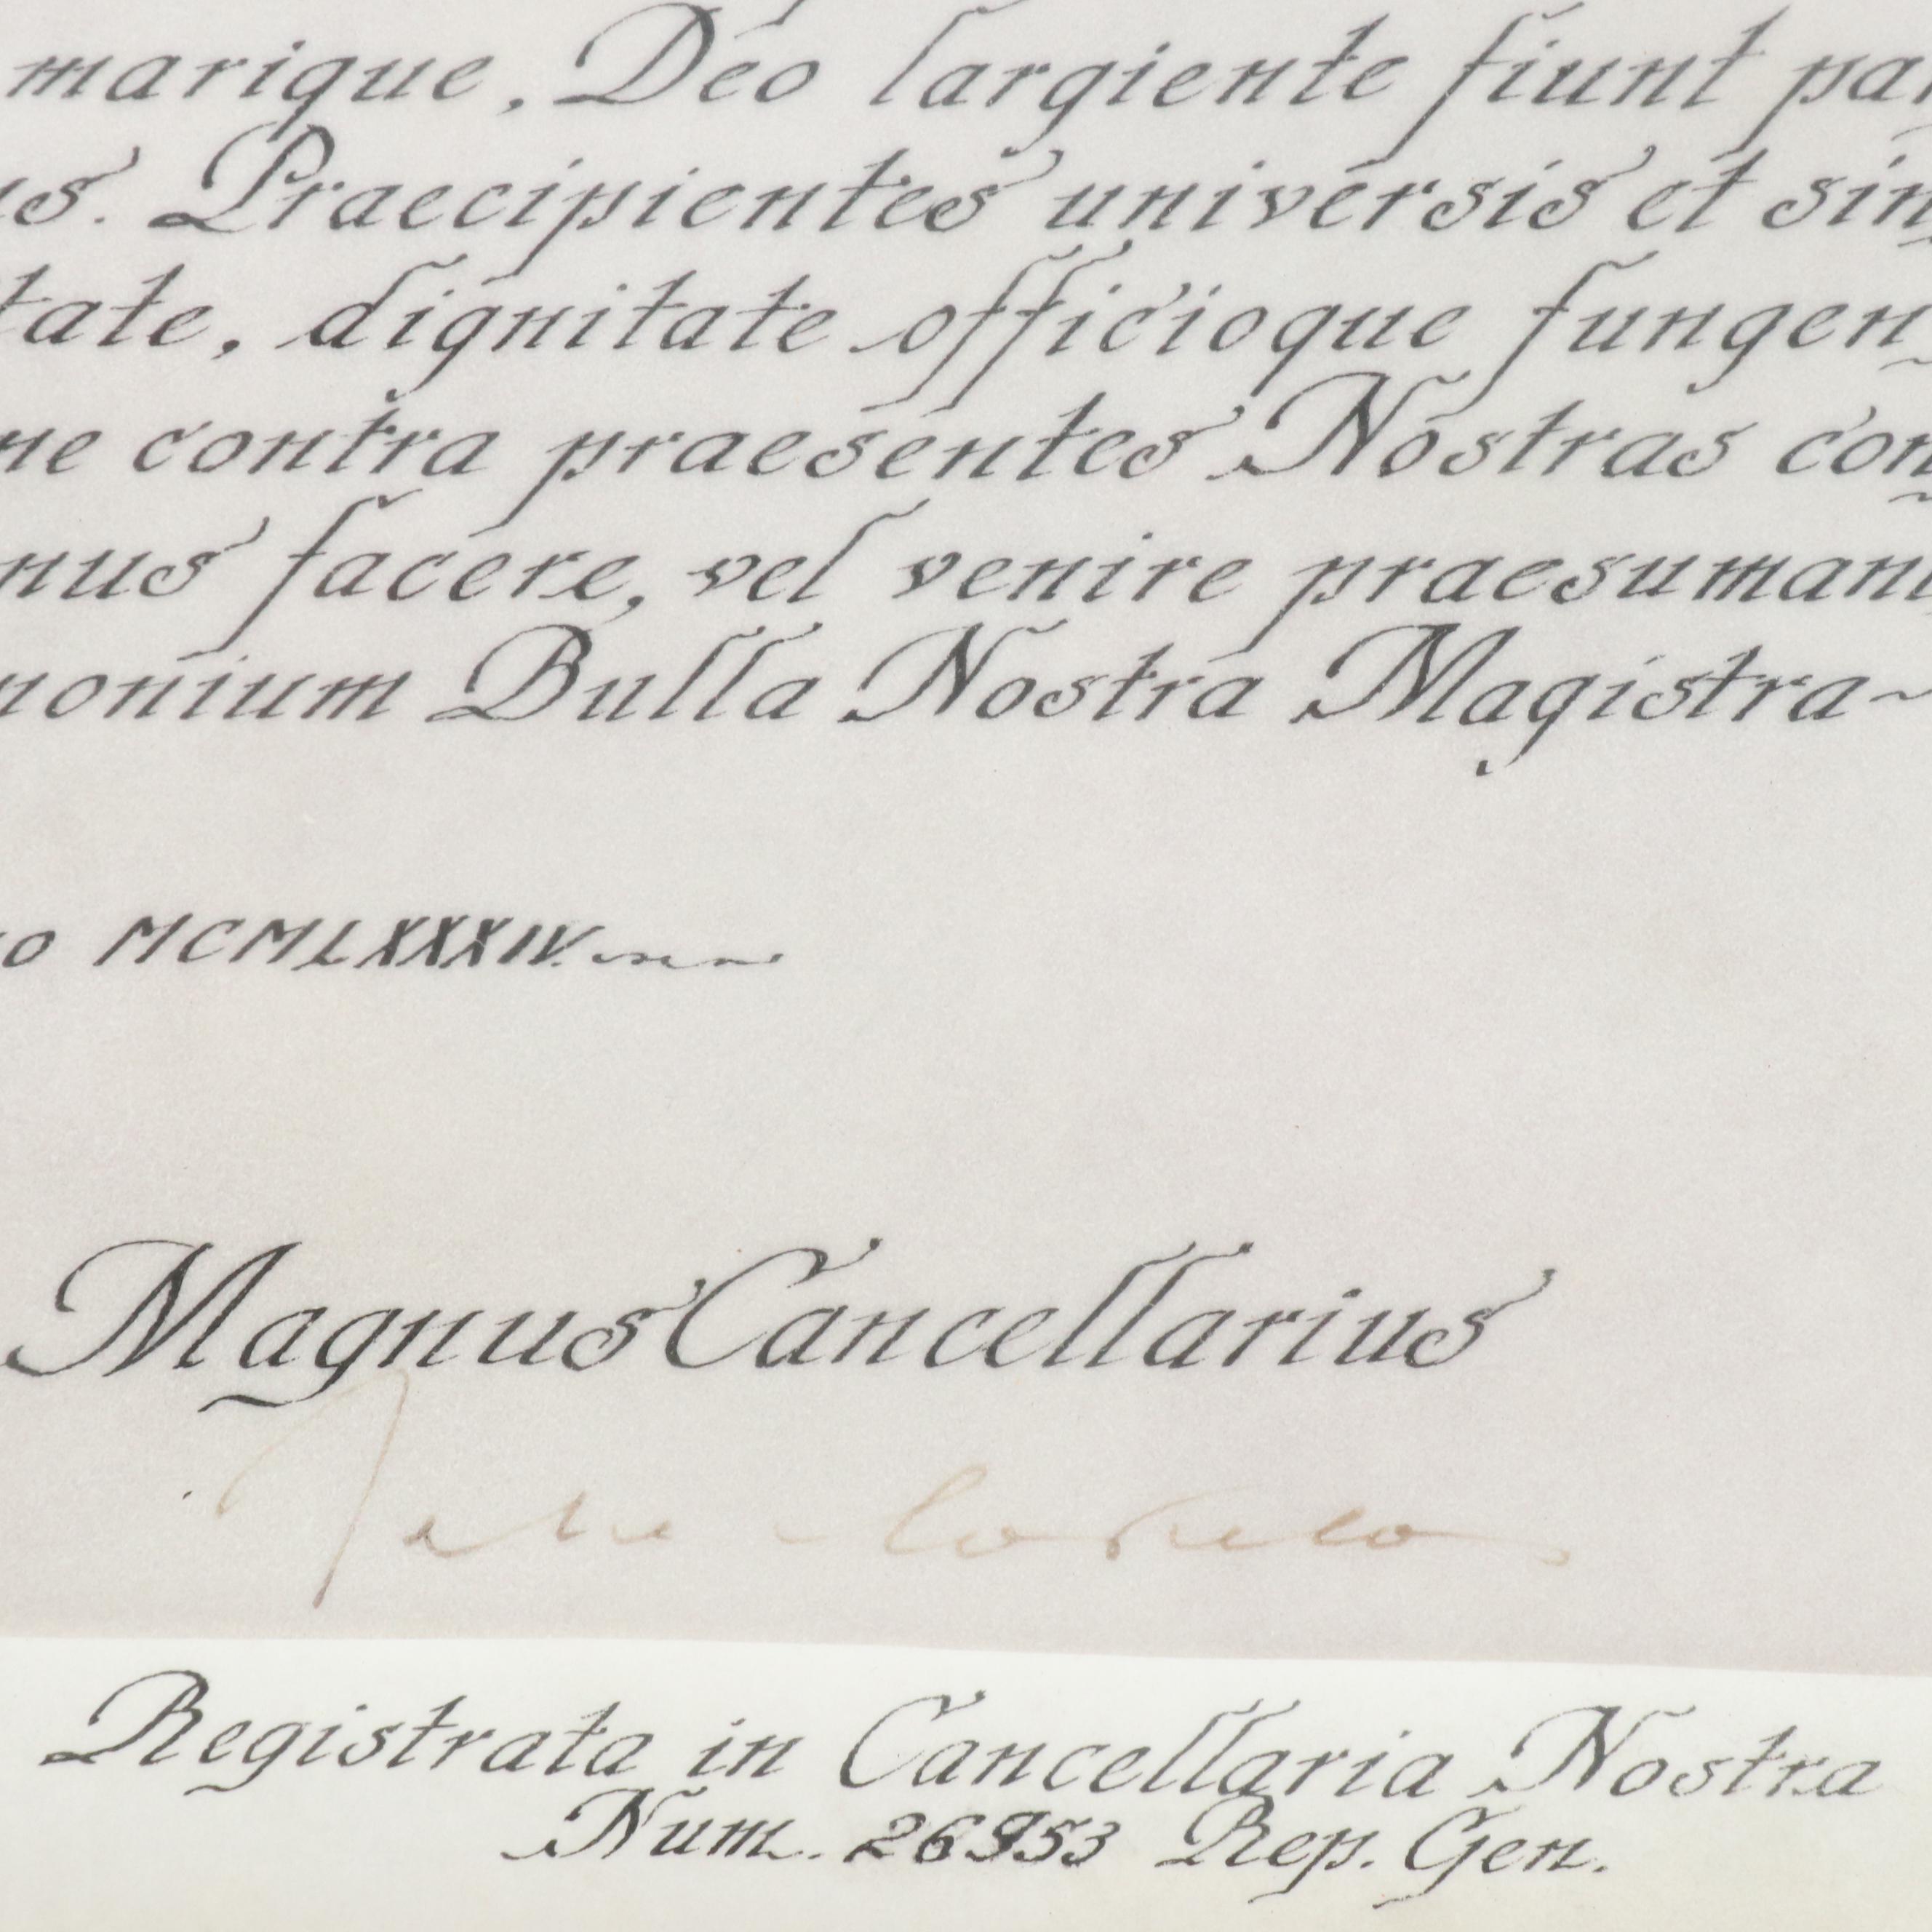 marique, Deo largiente fiunt par
us. Praecipientes universis et sin
tate, dignitate officioque fungen
ne contra praesentes Nostras con
nus facere, vel venire praesumant
monium Bulla Nostra Magistra~
o MCMLXXXIV.
Magnus Cancellarius
Registrata in Cancellaria Nostra
Num. 26953 Rep. Gen.